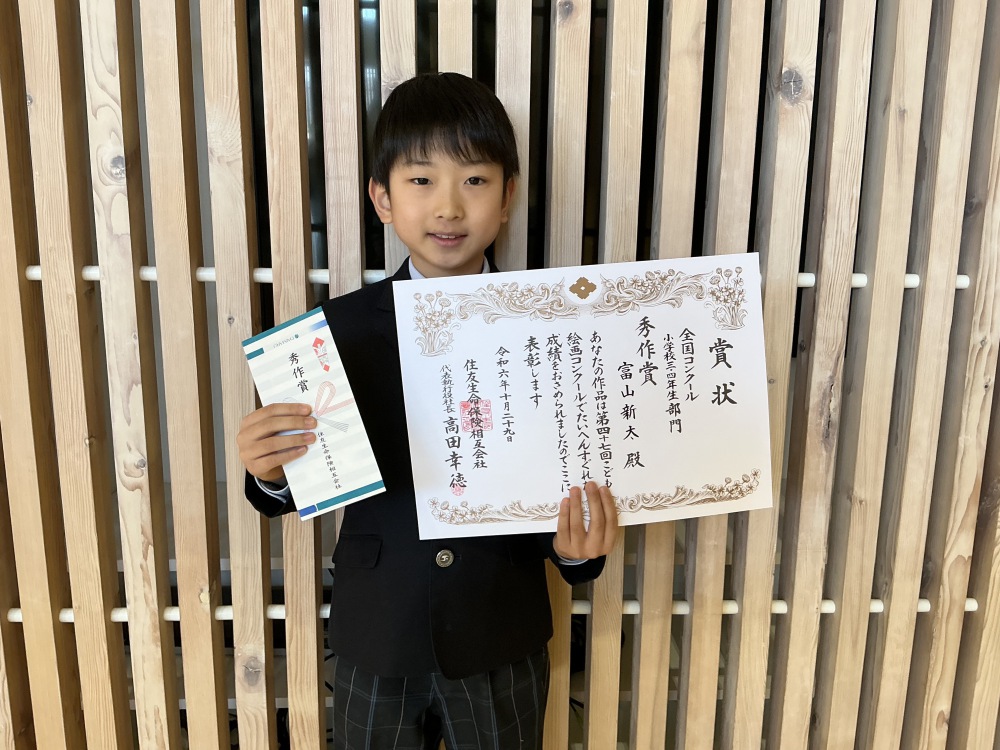 賞状
全国コンクール
小学校三・四年生部門
秀作賞
富山新太 殿
あなたの作品は第四十七回こども
絵画コンクールでたいへんすぐれた
成績をおさめられましたのでここに
表彰します
令和六年十月二十九日
住友生命保険相互会社
代表執行役社長 高田幸徳
秀作賞
住友生命保険相互会社